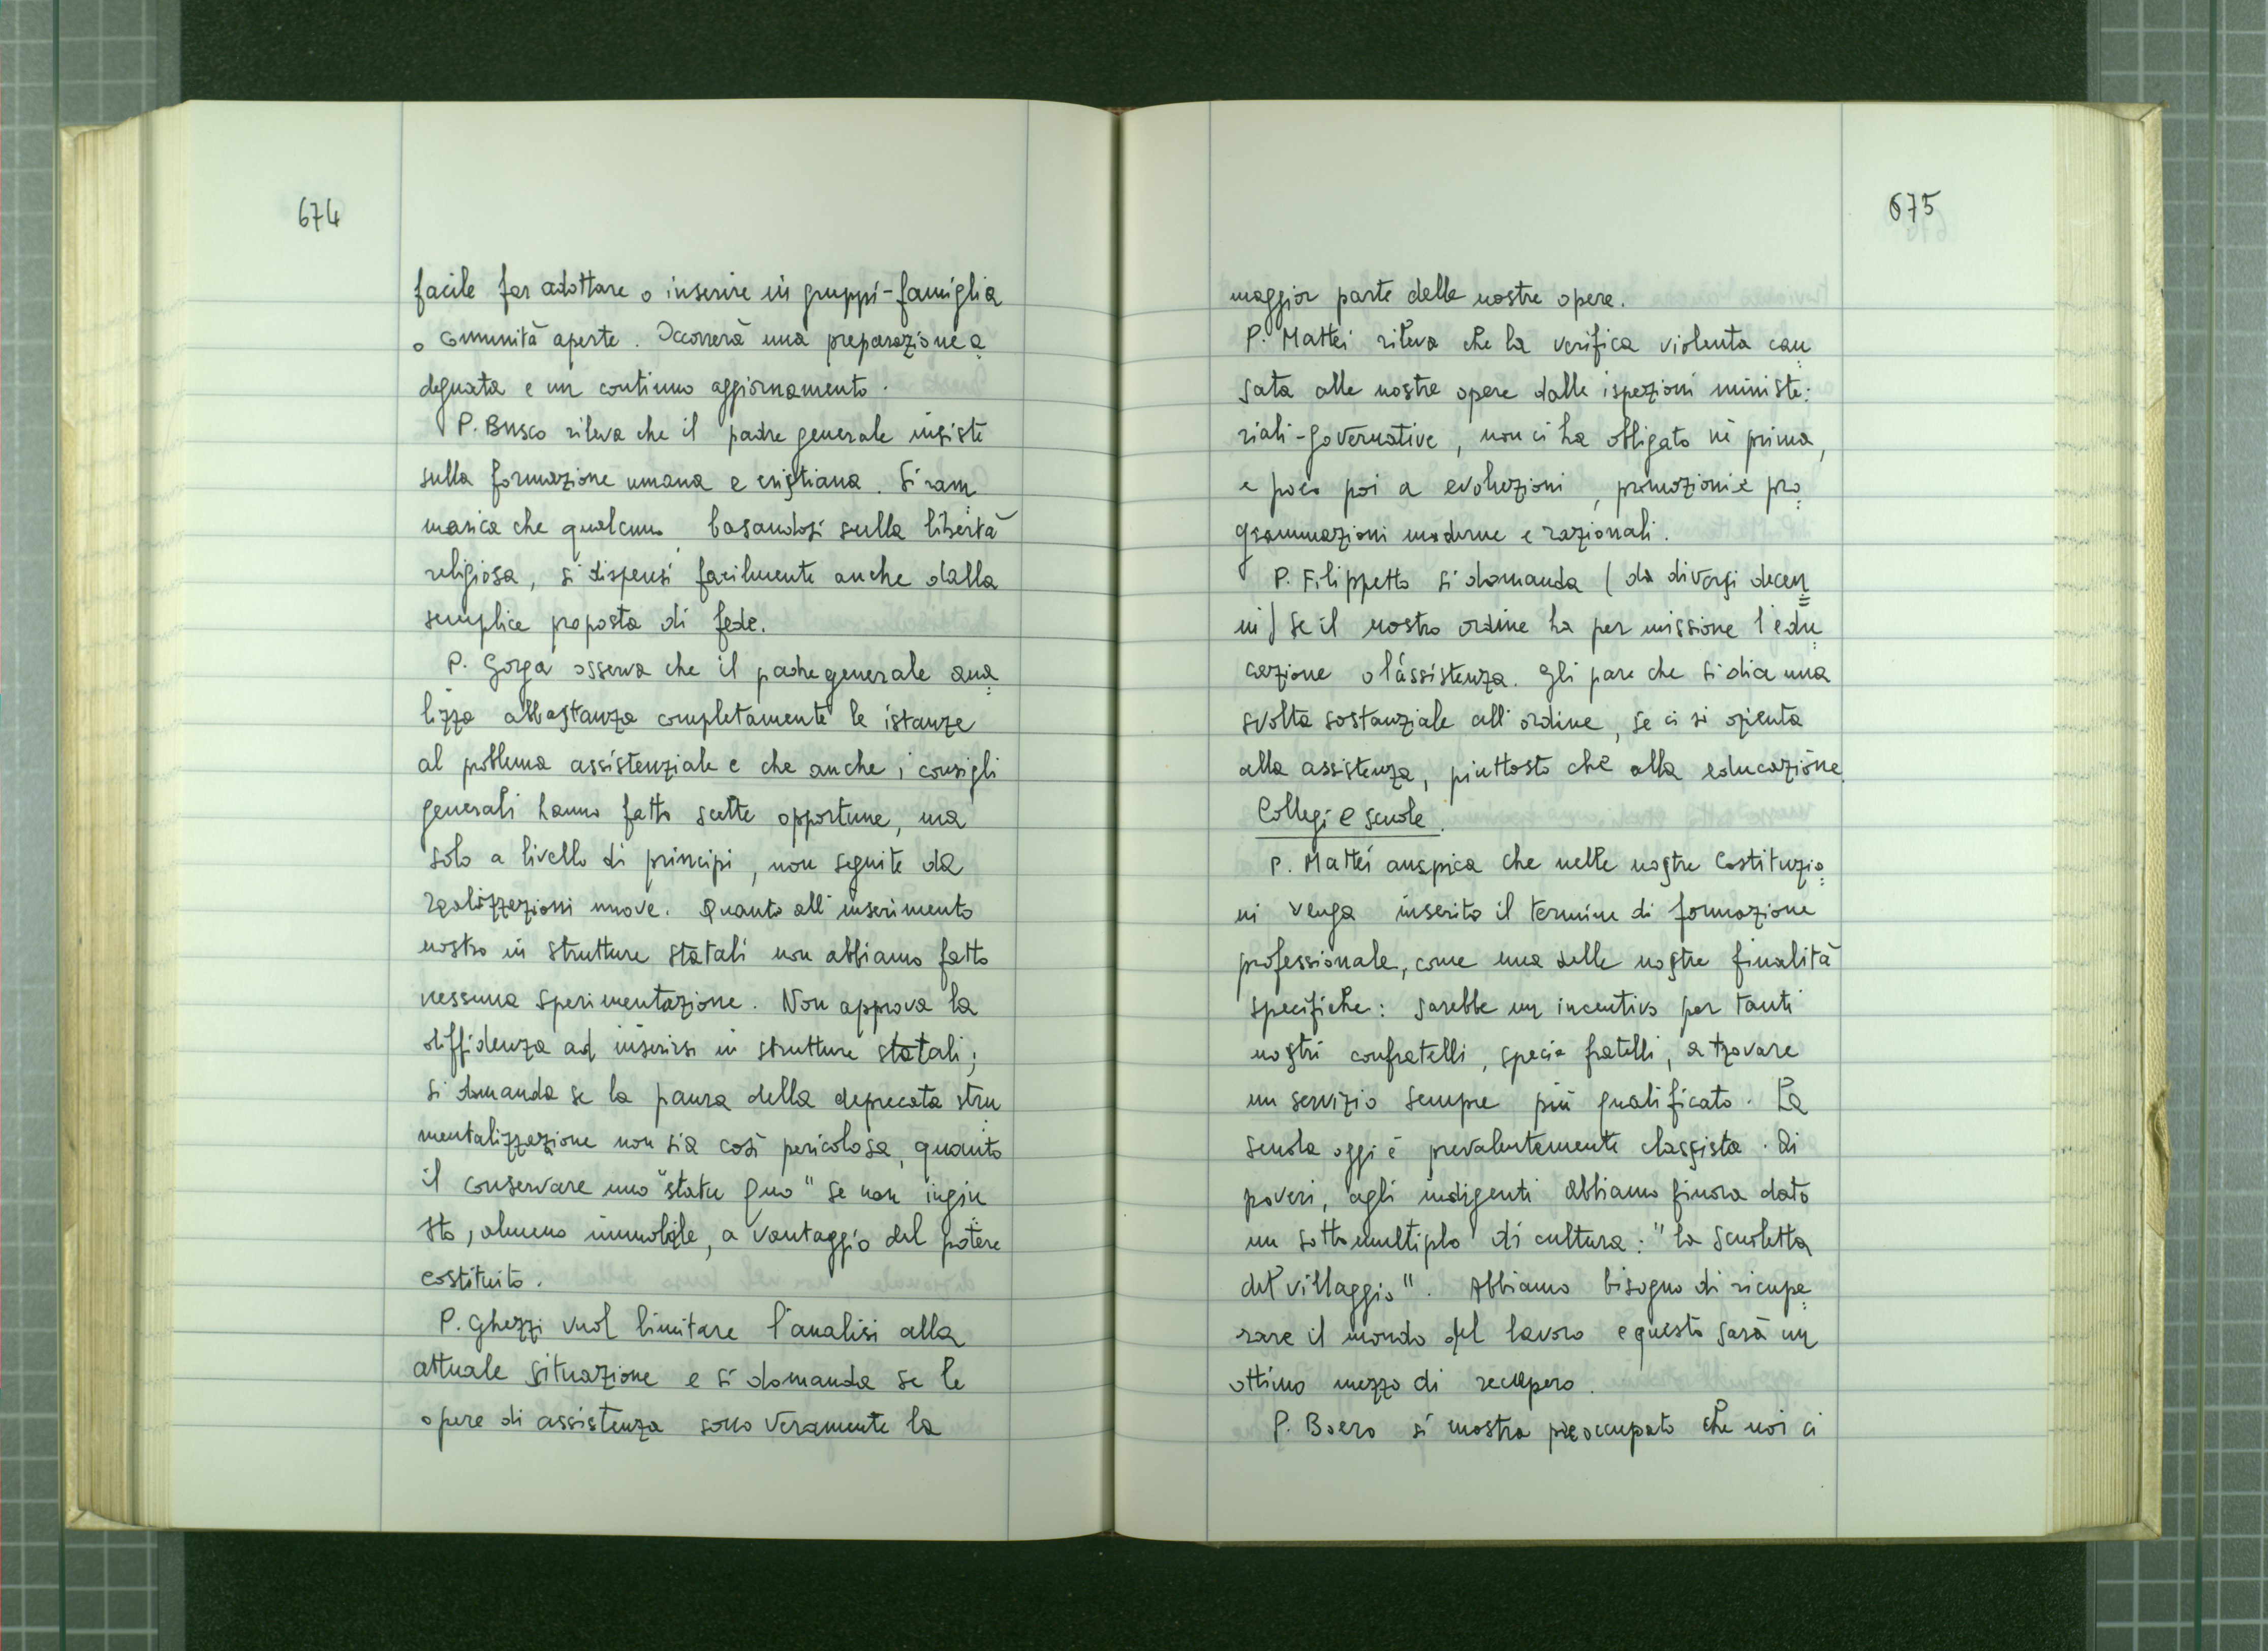 674
facile far adottare o inserire in gruppi-famiglia
o comunità aperte. Occorrerà una preparazione a=
deguata e un continuo aggiornamento.
P. Busco rileva che il padre generale insiste
sulla formazione umana e cristiana. Si ram=
marica che qualcuno, basandosi sulla libertà
religiosa, si dispensi facilmente anche dalla
semplice proposta di fede.
P. Gorga osserva che il padre generale ana=
lizza abbastanza completamente le istanze
al problema assistenziale e che anche i consigli
generali hanno fatto scelte opportune, ma
solo a livello di principi, non seguite da
realizzazioni nuove. Quanto all'inserimento
nostro in strutture statali non abbiamo fatto
nessuna sperimentazione. Non approva la
diffidenza ad inserirsi in strutture statali;
si domanda se la paura della deprecata stru=
mentalizzazione non sia così pericolosa, quanto
il conservare uno "statu quo" se non ingiu=
sto, almeno immobile, a vantaggio del potere
costituito.
P. Ghezzi vuol limitare l'analisi alla
attuale situazione e si domanda se le
opere di assistenza sono veramente la
675
maggior parte delle nostre opere.
P. Mattei rileva che la verifica violenta cau=
sata alle nostre opere dalle ispezioni ministe:
riali-governative, non ci ha obbligato nè prima,
e poco poi a evoluzioni, promozioni e pro=
grammazioni moderne e razionali.
P. Filippetto si domanda (da diversi decen=
ni) se il nostro ordine ha per missione l'edu=
cazione o l'assistenza. Gli pare che si dia una
svolta sostanziale all'ordine, se ci si orienta
alla assistenza, piuttosto che alla educazione.
Collegi e scuole.
P. Mattei auspica che nelle nostre Costituzio=
ni venga inserito il termine di formazione
professionale, come una delle nostre finalità
specifiche: sarebbe un incentivo per tanti
nostri confratelli, specie fratelli, a trovare
un servizio sempre più qualificato. La
scuola oggi è prevalentemente classista. Ai
poveri, agli indigenti abbiamo finora dato
un sottomultiplo di cultura: "la scuoletta
del villaggio". Abbiamo bisogno di ricupe=
rare il mondo del lavoro e questo sarà un
ottimo mezzo di recupero.
P. Boero si mostra preoccupato che noi ci